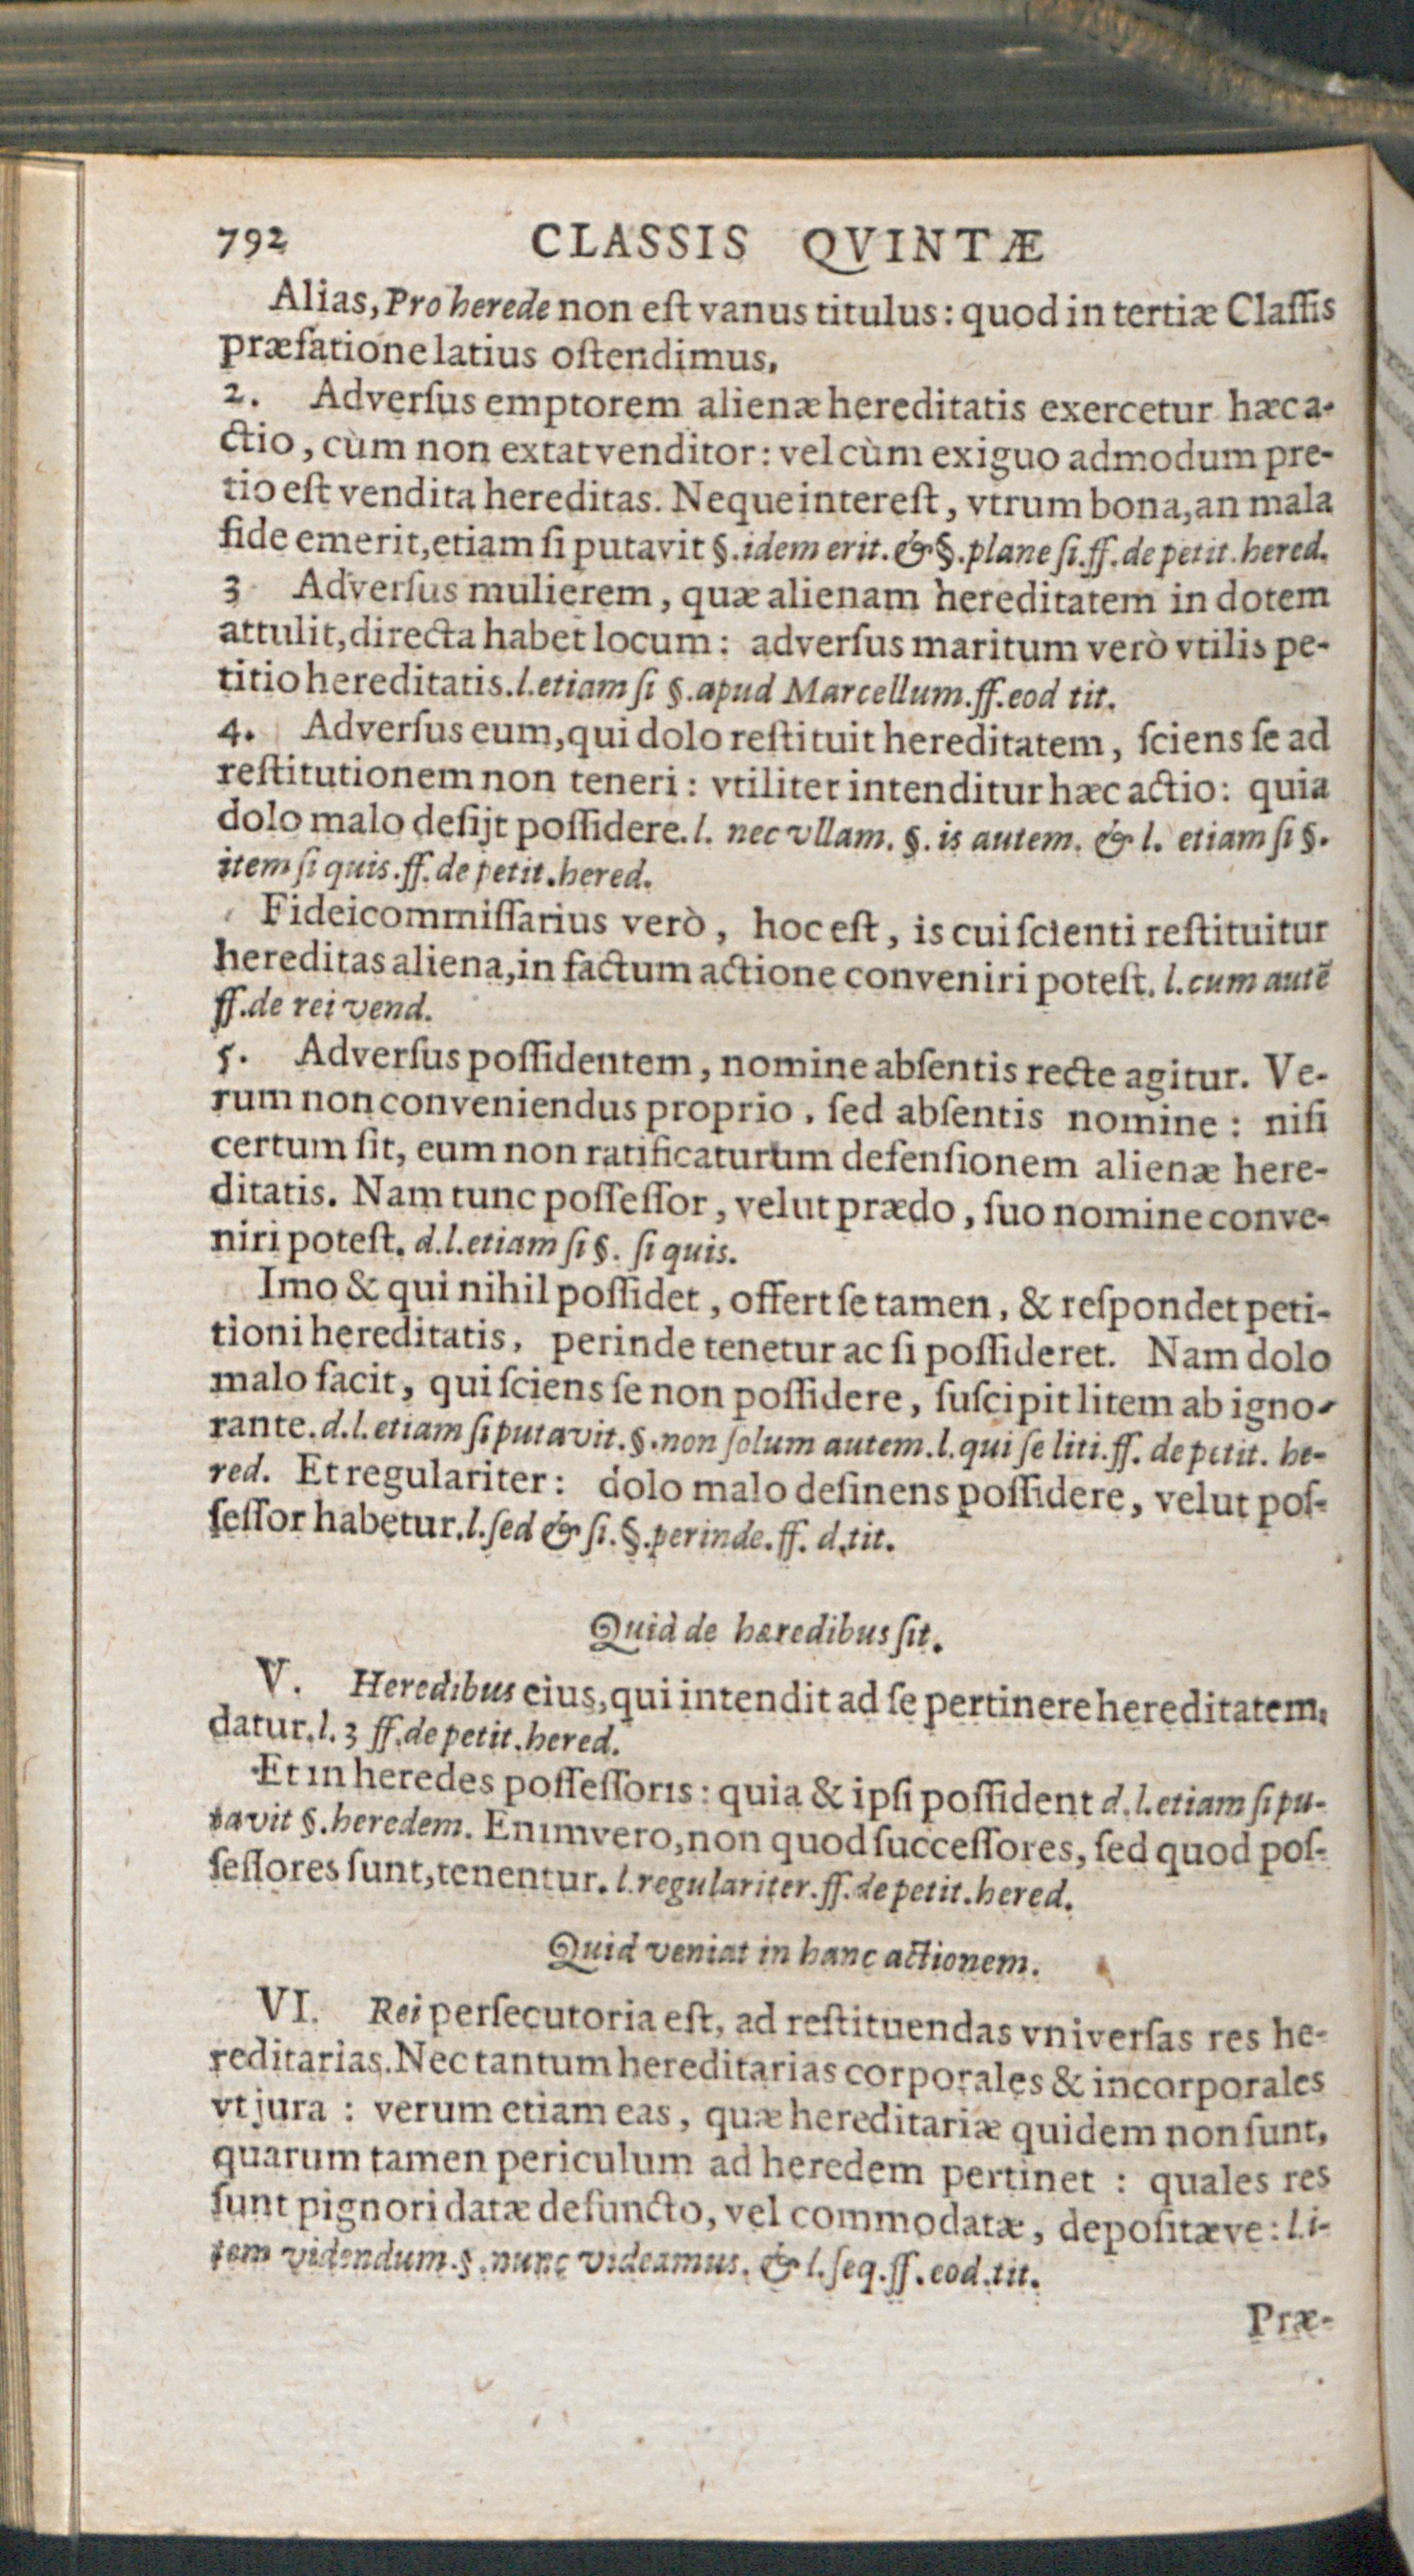 792 CLASSIS QVINTÆ
Alias, Pro herede non eſt vanus titulus: quod in tertiæ Claſſis
præfatione latius oſtendimus.
2. Adverſus emptorem alienæ hereditatis exercetur hæc a-
ctio, cùm non extat venditor: vel cùm exiguo admodum pre-
tio eſt vendita hereditas. Neque intereſt, vtrum bona, an mala
fide emerit, etiam ſi putavit §. idem erit. & §. plane ſi. ff. de petit. hered.
3 Adverſus mulierem, quæ alienam hereditatem in dotem
attulit, directa habet locum: adverſus maritum verò vtilis pe-
titio hereditatis. l. etiam ſi §. apud Marcellum. ff. eod tit.
4. Adverſus eum, qui dolo reſtituit hereditatem, ſciens ſe ad
reſtitutionem non teneri: vtiliter intenditur hæc actio: quia
dolo malo deſijt poſſidere. l. nec vllam. §. is autem. & l. etiam ſi §.
item ſi quis. ff. de petit. hered.
Fideicommiſſarius verò, hoc eſt, is cui ſcienti reſtituitur
hereditas aliena, in factum actione conveniri poteſt. l. cum autē
ff. de rei vend.
5. Adverſus poſſidentem, nomine abſentis recte agitur. Ve-
rum non conveniendus proprio, ſed abſentis nomine: niſi
certum ſit, eum non ratificaturum defenſionem alienæ here-
ditatis. Nam tunc poſſeſſor, velut prædo, ſuo nomine conve-
niri poteſt. d. l. etiam ſi §. ſi quis.
Imo & qui nihil poſſidet, offert ſe tamen, & reſpondet peti-
tioni hereditatis, perinde tenetur ac ſi poſſideret. Nam dolo
malo facit, qui ſciens ſe non poſſidere, ſuſcipit litem ab igno-
rante. d. l. etiam ſi putavit. §. non ſolum autem. l. qui ſe liti. ff. de petit. he-
red. Et regulariter: dolo malo deſinens poſſidere, velut poſ-
ſeſſor habetur. l. ſed & ſi. §. perinde. ff. d. tit.
Quid de hæredibus ſit.
V. Heredibus eius, qui intendit ad ſe pertinere hereditatem,
datur. l. 3 ff. de petit. hered.
Et in heredes poſſeſſoris: quia & ipſi poſſident d. l. etiam ſi pu-
tavit §. heredem. Enimvero, non quod ſucceſſores, ſed quod poſ-
ſeſſores ſunt, tenentur. l. regulariter. ff. de petit. hered.
Quid veniat in hanc actionem.
VI. Rei perſecutoria eſt, ad reſtituendas vniverſas res he-
reditarias. Nec tantum hereditarias corporales & incorporales
vt jura: verum etiam eas, quæ hereditariæ quidem non ſunt,
quarum tamen periculum ad heredem pertinet: quales res
ſunt pignori datæ defuncto, vel commodatæ, depoſitæve: l. i-
tem videndum. §. nunc videamus. & l. ſeq. ff. eod. tit.
Præ-